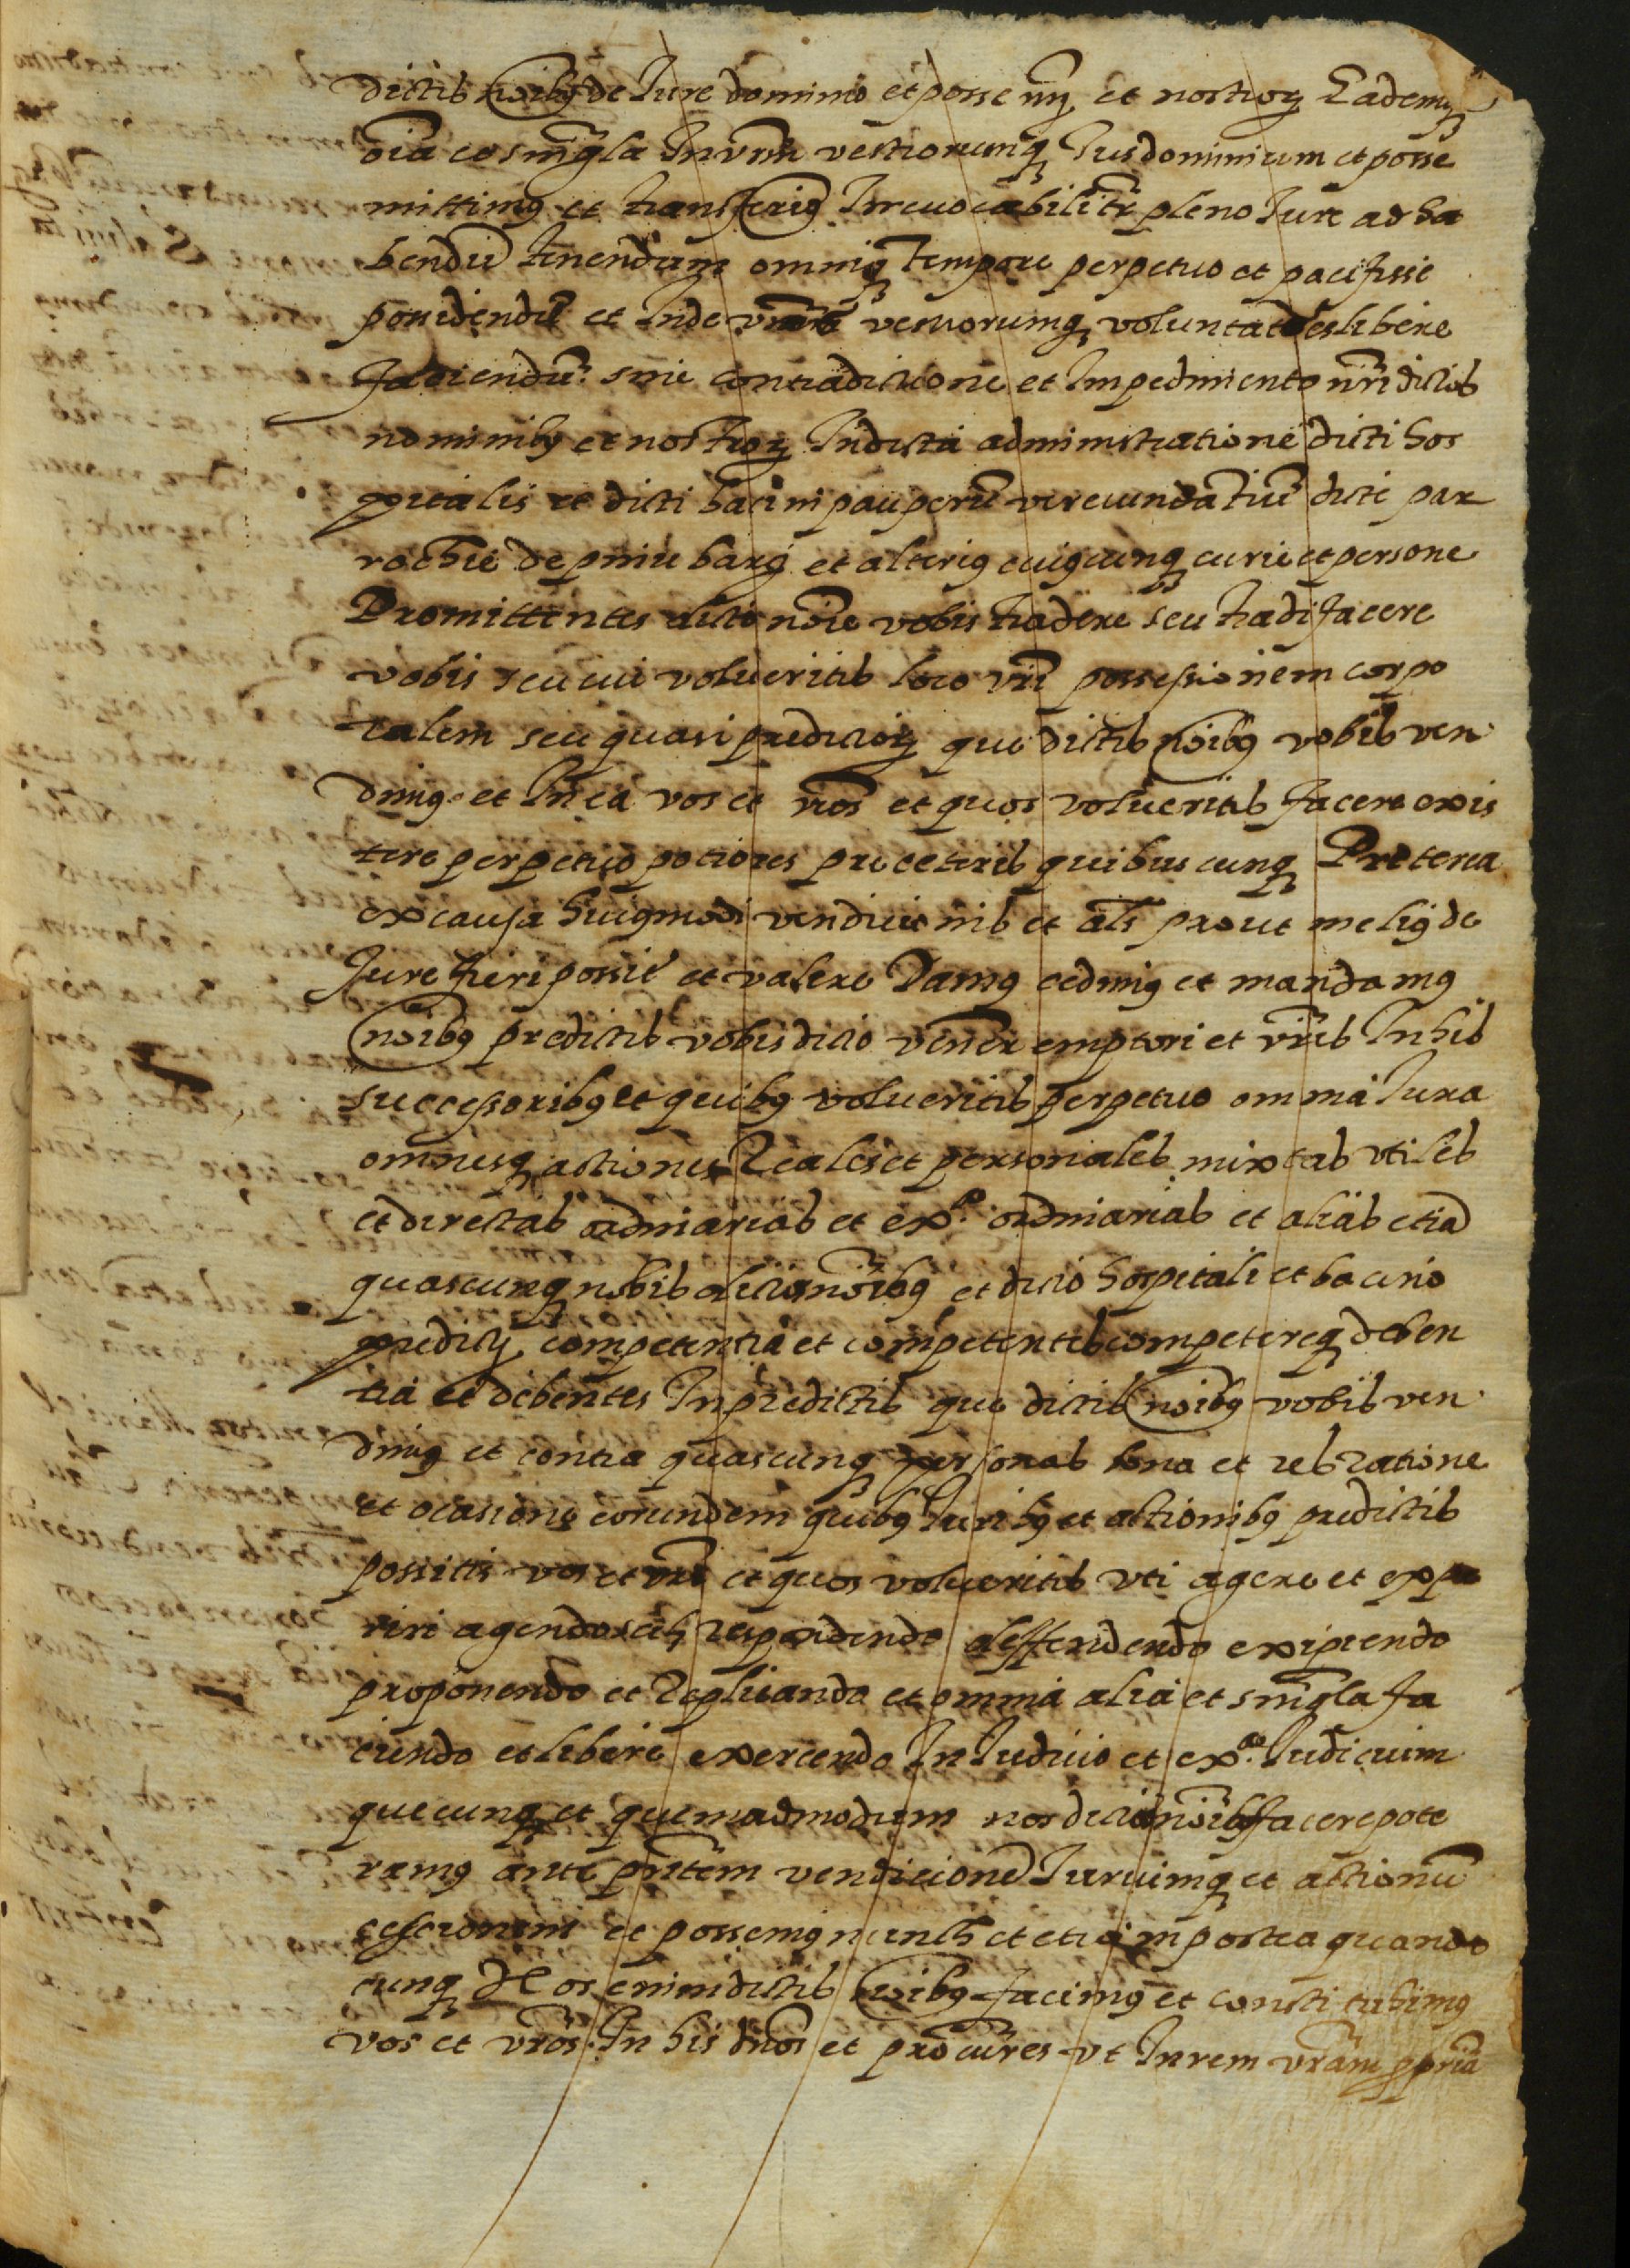 dictis noĩbꝰ de Iure dominio et posse nr̃j et nostrorꝫ Eademqꝫ
oĩa et singla In vrm̃ vestrorumqꝫ Ius dominium et posse
mittimꝰ et transferimꝰ Irreuocabilitr̃ pleno Iure ad ha
bendũ tenendum omniqꝫ tempore perpetuo et pacifisse
possidendũ et Inde vrãs vestrorumqꝫ voluntates libere
faciendũ sine contradictione et Impedimento nr̃i dictis
nominibꝰ et nostrorꝫ In dicta administratione dicti hos
pitalis et dicti bacini pauperũ verecundantiũ dicte par
rochie de pinu barc̃ et alteriꝰ cuiꝰcunqꝫ curie et persone
Promittentes dicto noĩe vobis tradere seu tradi facere
vobis seu cui volueritis loco vrĩ possessionem corpo
ralem seu quasi predictorꝫ que dictis noĩbꝰ vobis ven
dimꝰ et In ea vos et vrõs et quos volueritis facere exis
tere perpetuo potiores pre ceteris quibuscunqꝫ Preterea
ex causa huiꝰmodi vendicionis et als̃ prout meliꝰ de
Iure fieri possit et valere Damꝰ cedimꝰ et mandamꝰ
noĩbꝰ predictis vobis dicto vener̃ emptori et vrĩs In his
successoribꝰ et quibꝰ volueritis perpetuo omnia Iura
omnesqꝫ actiones Reales et personales mixtas vtiles
et directas ordinarias et exᵃ. ordinarias et alias etiã
quascunqꝫ nobis dictis noĩbꝰ et dicto hospitali et bacino
predictꝭ competentia et competentes competereqꝫ deben
tia et debentes In predictis que dictis noĩbꝰ vobis ven
dimꝰ et contra quascunqꝫ personas bona et res ratione
et ocasione eorundem quibꝰ Iuribꝰ et actionibꝰ predictis
possitis vos et vrĩ et quos volueritis vti agere et expe
riri agendo scꝫ respondendo deffendendo exipiendo
proponendo et Replicando et omnia alia et singla fa
ciendo et libere exercendo In Iudicio et exᵃ. Iudicium
quecunqꝫ et quemadmodum nos dictis noĩbꝰ facere pote
ramꝰ ante pñtem vendicionẽ Iuriumqꝫ et actionũ
cessionem et possemꝰ nunch et etiam postea quando
cunqꝫ Nos enim dictis noĩbꝰ facimꝰ et constituimꝰ
vos et vrõs In his dños et procur̃es vt In rem vrãm ppriã